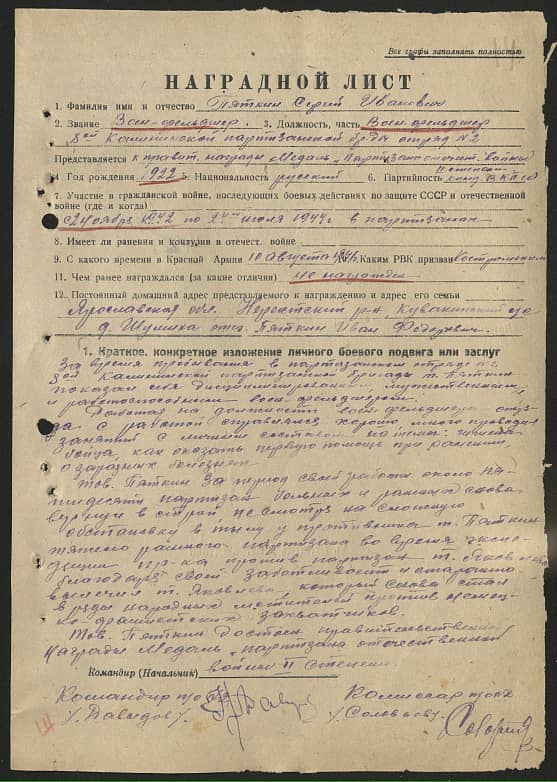 Все графы заполнять полностью
НАГРАДНОЙ ЛИСТ
1. Фамилия имя и отчество Пяткин Сергей Иванович
2. Звание Воен-фельдшер. 3. Должность, часть Воен-фельдшер
8ой Калининской партизанской бр-ды отряд №2
Представляется к правит. награды Медаль „Партизан отечит. войны
II степени
4. Год рождения 1922 5. Национальность русский 6. Партийность канд. ВКП(б)
7. Участие в гражданской войне, последующих боевых действиях по защите СССР и отечественной
войне (где и когда)
с 24 ноября 1942 по 24 июля 1944г в партизанах
8. Имеет ли ранения и контузии в отечест. войне
9. С какого времени в Красной Армии 10 августа 1941г. Каким РВК призван Костромским
11. Чем ранее награждался (за какие отличия) не награжден
12. Постоянный домашний адрес представляемого к награждению и адрес его семьи
Ярославская обл. Нерехтский р-н
д. Шумиха отец. Пяткин Иван Федорович.
1. Краткое, конкретное изложение личного боевого подвига или заслуг
За время пребывания в партизанском отряде №2
8ой Калининской партизанской бригады т. Пяткин
показал себя дисциплинированным, мужественным,
и работоспособным воен-фельдшером.
Работая на должности воен-фельдшера отря-
да с работой справлялся хорошо, много проводил
занятий с личным составом на темы: гигиена
бойца, как оказать первую помощь при ранении
о заразных болезнях
Тов. Пяткин за период своей работы около пя-
тидесяти партизан больных и раненых снова
вернул в строй несмотря на сложную
обстановку в тылу у противника т. Пяткин
тяжело раненого партизана во время экспе-
диции пр-ка против партизан т. Яковлева
благодаря своей заботливости и старанию
вылечил т. Яковлева, который снова стал
в ряды народных мстителей против немец-
ко-фашистских захватчиков.
Тов. Пяткин достоен правительственной
награды Медаль „Партизана отечественной
войны II степени
Командир (Начальник)
Командир
/Давыдов/.
Комиссар
/Соловьов/.